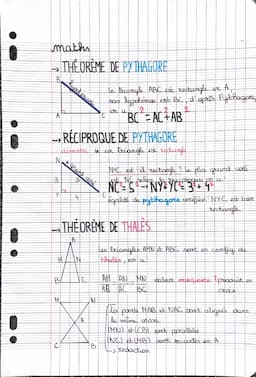 maths
→ THÉORÈME DE PYTHAGORE
B
le triangle ABC est rectangle en A,
son hypoténuse est BC, d'après Pythagore,
on a
A
C
BC²=AC²+AB²
→ RÉCIPROQUE DE PYTHAGORE
un triangle est rectangle
N
NYC est il rectangle? le plus grand coté
est NC
NC²=5² → NY²+YC²= 3²+4²
3
Y
4
C
égalité de pythagore vérifiée NYC est bien
rectangle
→ THÉORÈME DE THALÈS
A
les triangles AMN et ABC sont en config de
thalès, on a
M
N
AM AN MN
AB BC
produit en
croix
B
C
M
N
les points MAB et NAC sont alignés dans
le même ordre
A
(MN) et (CB) sont parallèles
(NC) et (MB) sont sécantes en A
↳ rédaction
C
B